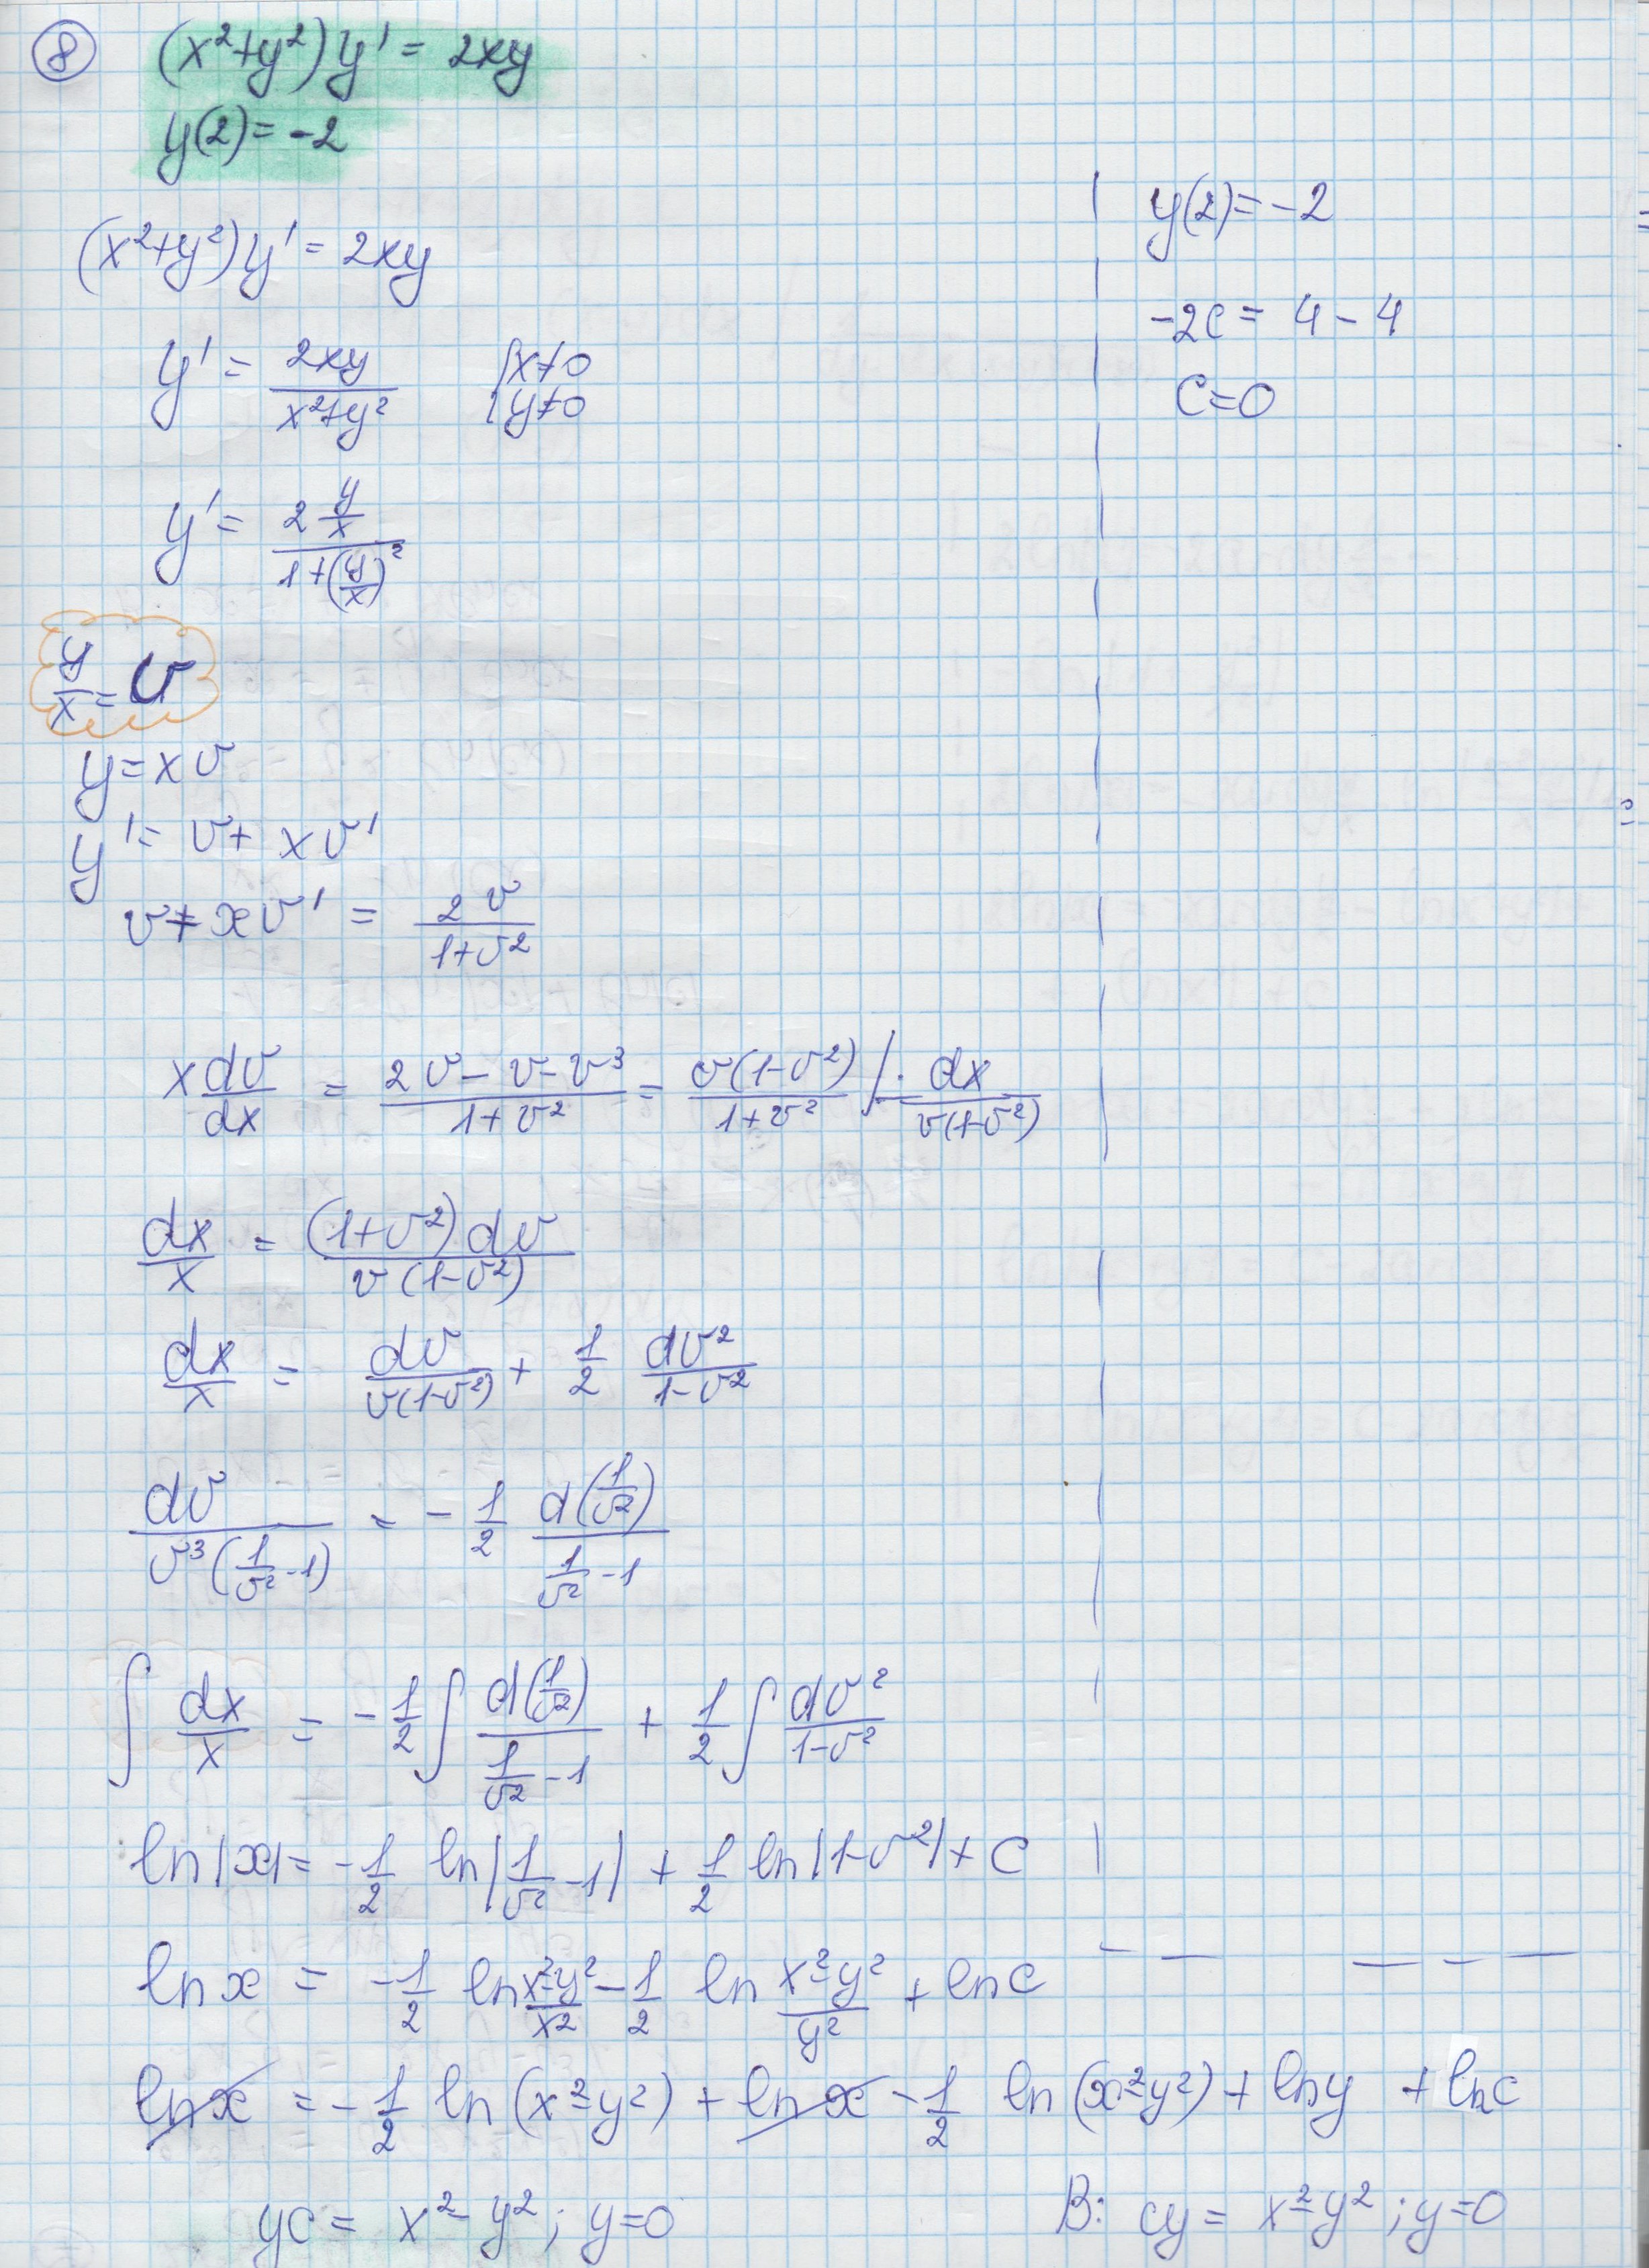 8 (x²+y²)y' = 2xy
y(2) = -2
(x²+y²)y' = 2xy
y' = 2xy / (x²+y²) { x≠0 y≠0
y' = 2 y/x / (1+(y/x)²)
y/x = v
y = xv
y' = v + xv'
v + xv' = 2v / (1+v²)
x dv/dx = (2v - v - v³) / (1+v²) = v(1-v²) / (1+v²) | · dx / (v(1-v²))
dx/x = (1+v²)dv / (v(1-v²))
dx/x = dv / (v(1-v²)) + 1/2 dv² / (1-v²)
dv / (v³(1/v² - 1)) = - 1/2 d(1/v²) / (1/v² - 1)
∫ dx/x = - 1/2 ∫ d(1/v²) / (1/v² - 1) + 1/2 ∫ dv² / (1-v²)
ln|x| = - 1/2 ln|1/v² - 1| + 1/2 ln|1-v²| + c
ln x = - 1/2 ln (x²-y²)/x² - 1/2 ln (x²-y²)/y² + ln c
ln x = - 1/2 ln(x²-y²) + ln x - 1/2 ln(x²-y²) + ln y + ln c
yc = x² - y² ; y=0
y(2) = -2
-2c = 4 - 4
c = 0
В: cy = x² - y² ; y=0